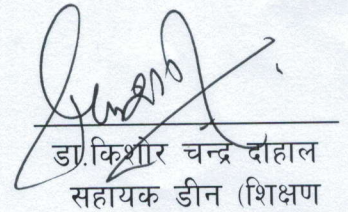 डा.किशोर चन्द्र दाहाल
सहायक डीन (शिक्षण